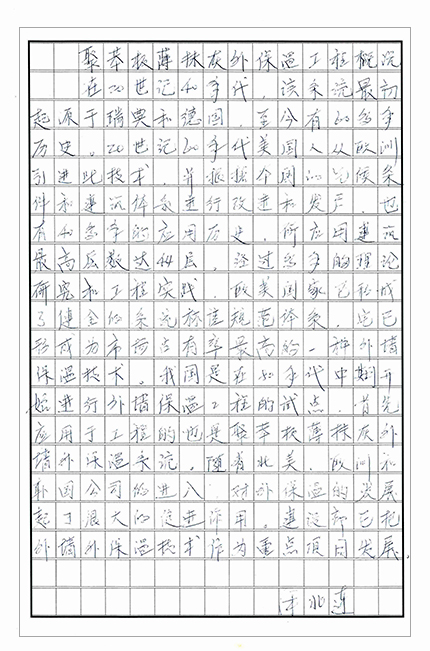 聚苯板薄抹灰外保温工程概况
在20世纪40年代,该系统最初
起原于瑞典和德国,至今有60多年
历史。20世纪60年代美国人从欧洲
引进此技术,并根据个国的气候条
件和建筑体系进行改进和发产,也
有40多年的应用历史,所应用建筑
最高层数达44层,经过多年的理论
研究和工程实践,欧美国家已形成
了健全的系统标准规范体系,它已
形成为市场占有率最高的一种外墙
保温技术。我国是在80年代中期开
始进行外墙保温工程的试点,首先
应用于工程的也是聚苯板薄抹灰外
墙外保温系统,随着北美、欧洲和
韩国公司的进入,对外保温的发展
起了很大的促进作用。建设部已把
外墙外保温技术作为重点项目发展。